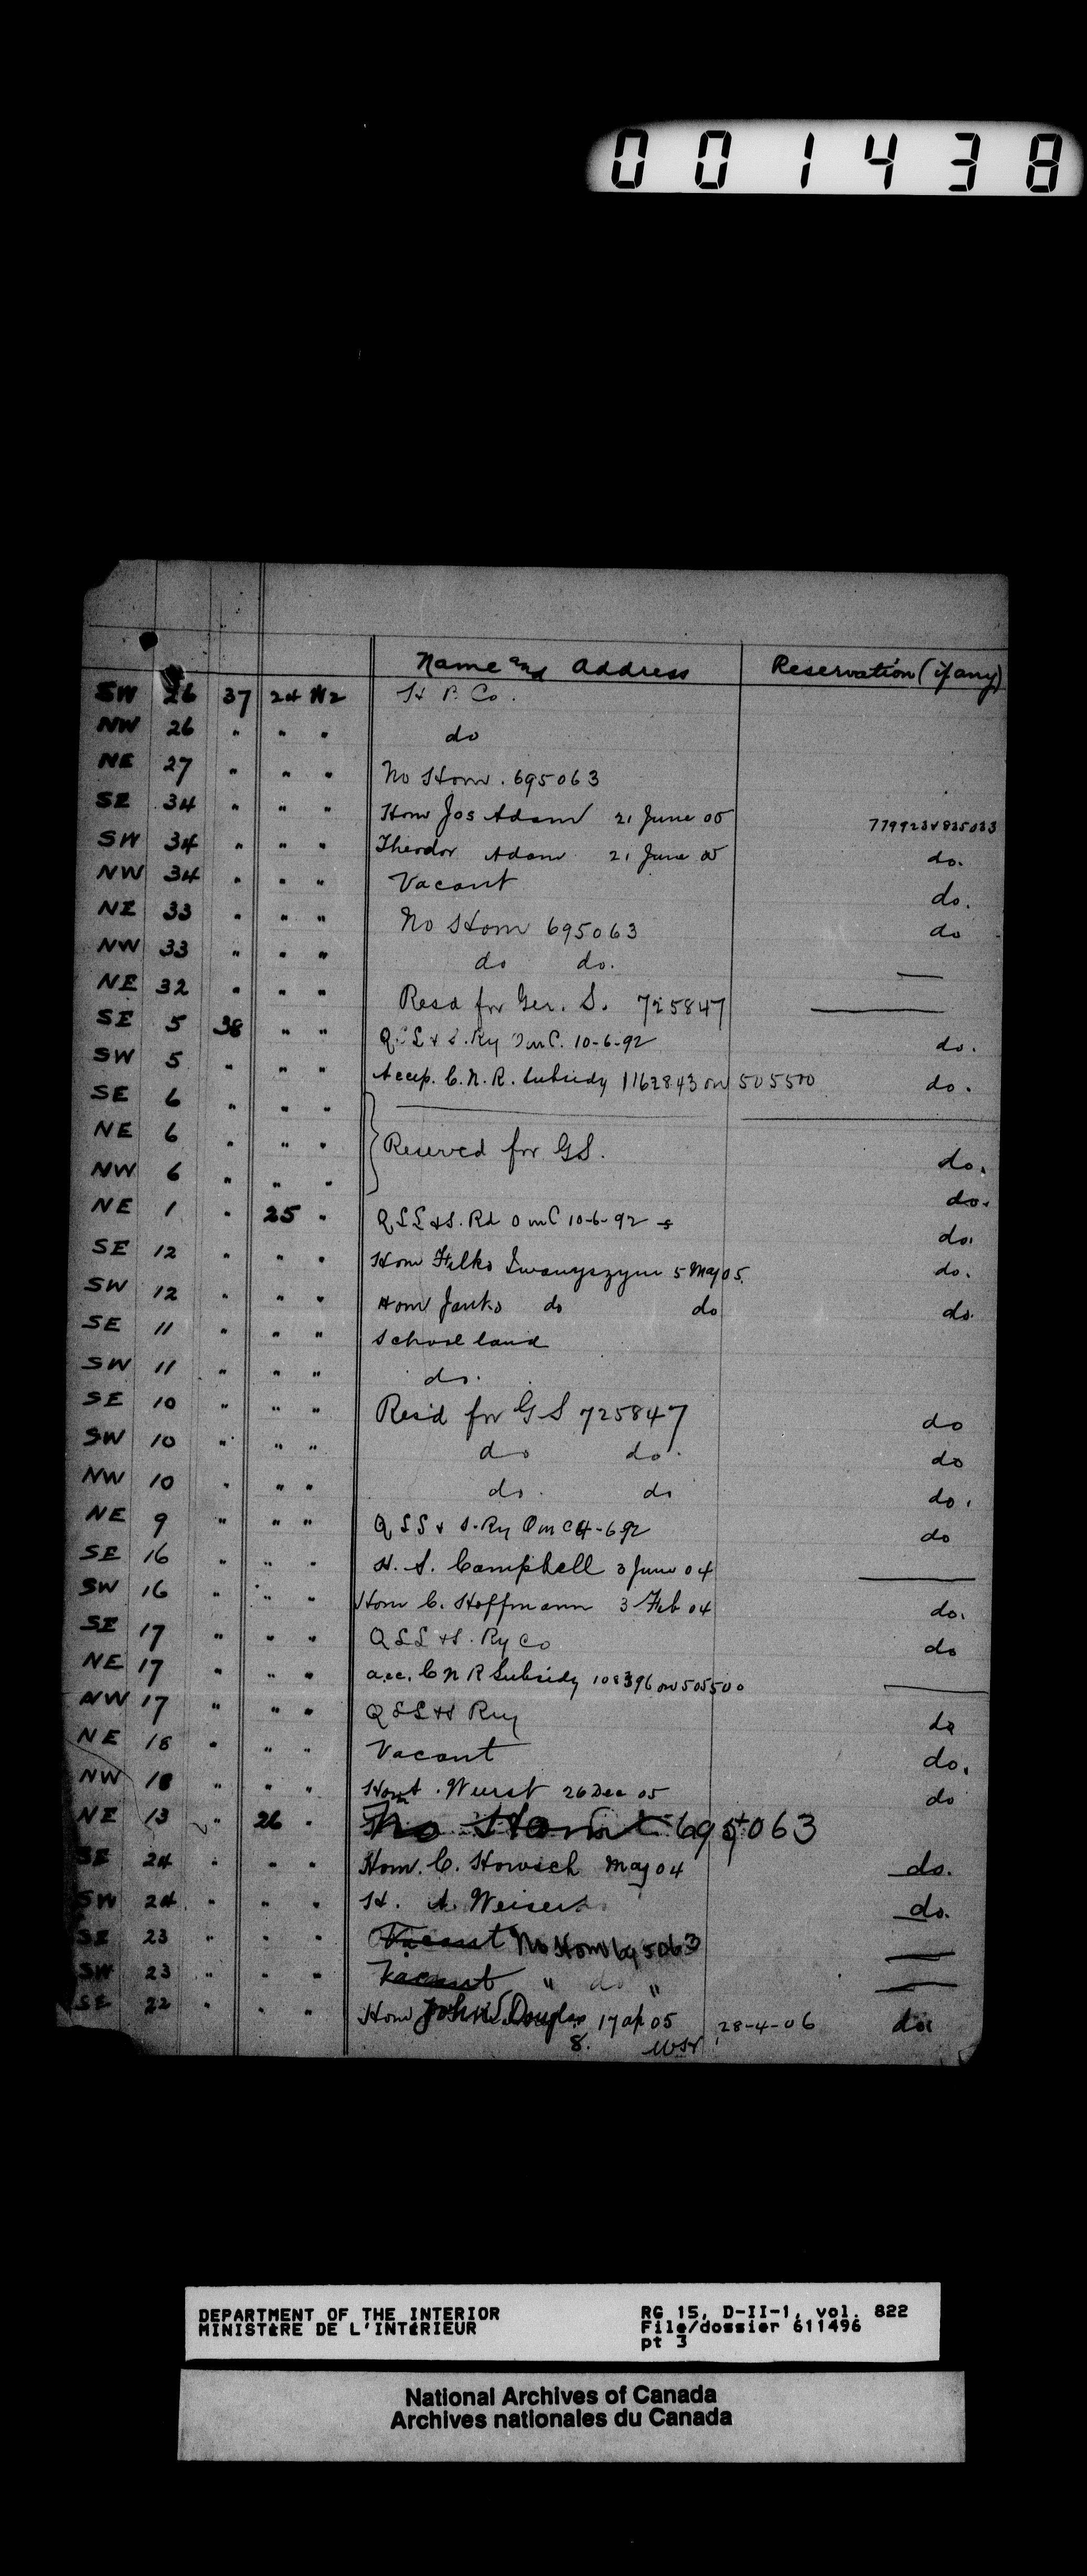 001438
Name and Address Reservation (if any)
SW 26 37 24 W2 H B Co.
NW 26 " " " do
NE 27 " " " No Hom. 695063
SE 34 " " " Hom Jos Adam 21 June 05 779923 & 835033
SW 34 " " " Theodor Adam 21 June 05 do.
NW 34 " " " Vacant do.
NE 33 " " " No Hom 695063 do
NW 33 " " " do do. —
NE 32 " " " Resd for Ger. S. 725847 —
SE 5 38 " " Q.L.L & S. Ry O in C. 10-6-92 do.
SW 5 " " " Accep. C.N.R. Subsidy 1162843 on 505500 do.
SE 6 " " "
NE 6 " " " Reserved for GS. do.
NW 6 " " " do.
NE 1 " 25 " Q L L & S. Rd O in C 10-6-92 do.
SE 12 " " " Hom Filko Iwanyszyn 5 May 05. do.
SW 12 " " " Hom Janko do do do.
SE 11 " " " School land
SW 11 " " " do.
SE 10 " " " Res'd for G S 725847 do
SW 10 " " " do do. do
NW 10 " " " do. do do.
NE 9 " " " Q L L & S. Ry O in C 4-6-92 do
SE 16 " " " H. S. Campbell 3 June 04 —
SW 16 " " " Hom C. Hoffmann 3 Feb 04 do.
SE 17 " " " Q L L & S. Ry Co do
NE 17 " " " acc. C N R Subsidy 108396 on 505500 —
NW 17 " " " Q L L & S Ry do
NE 18 " " " Vacant do.
NW 18 " " " Hom A. Wurst 26 Dec 05 do
NE 13 " 26 " No Hom 695063
SE 24 " " " Hom. C. Howsch May 04 do.
SW 24 " " " H. A. Weiser do.
SE 23 " " " Vacant No Hom 695063 —
SW 23 " " " Vacant " do " —
SE 22 " " " Hom John S. Douglas 17 ap 05 28-4-06 do.
8.
DEPARTMENT OF THE INTERIOR
MINISTÈRE DE L'INTÉRIEUR
RG 15, D-II-1, vol. 822
File/dossier 611496
pt 3
National Archives of Canada
Archives nationales du Canada